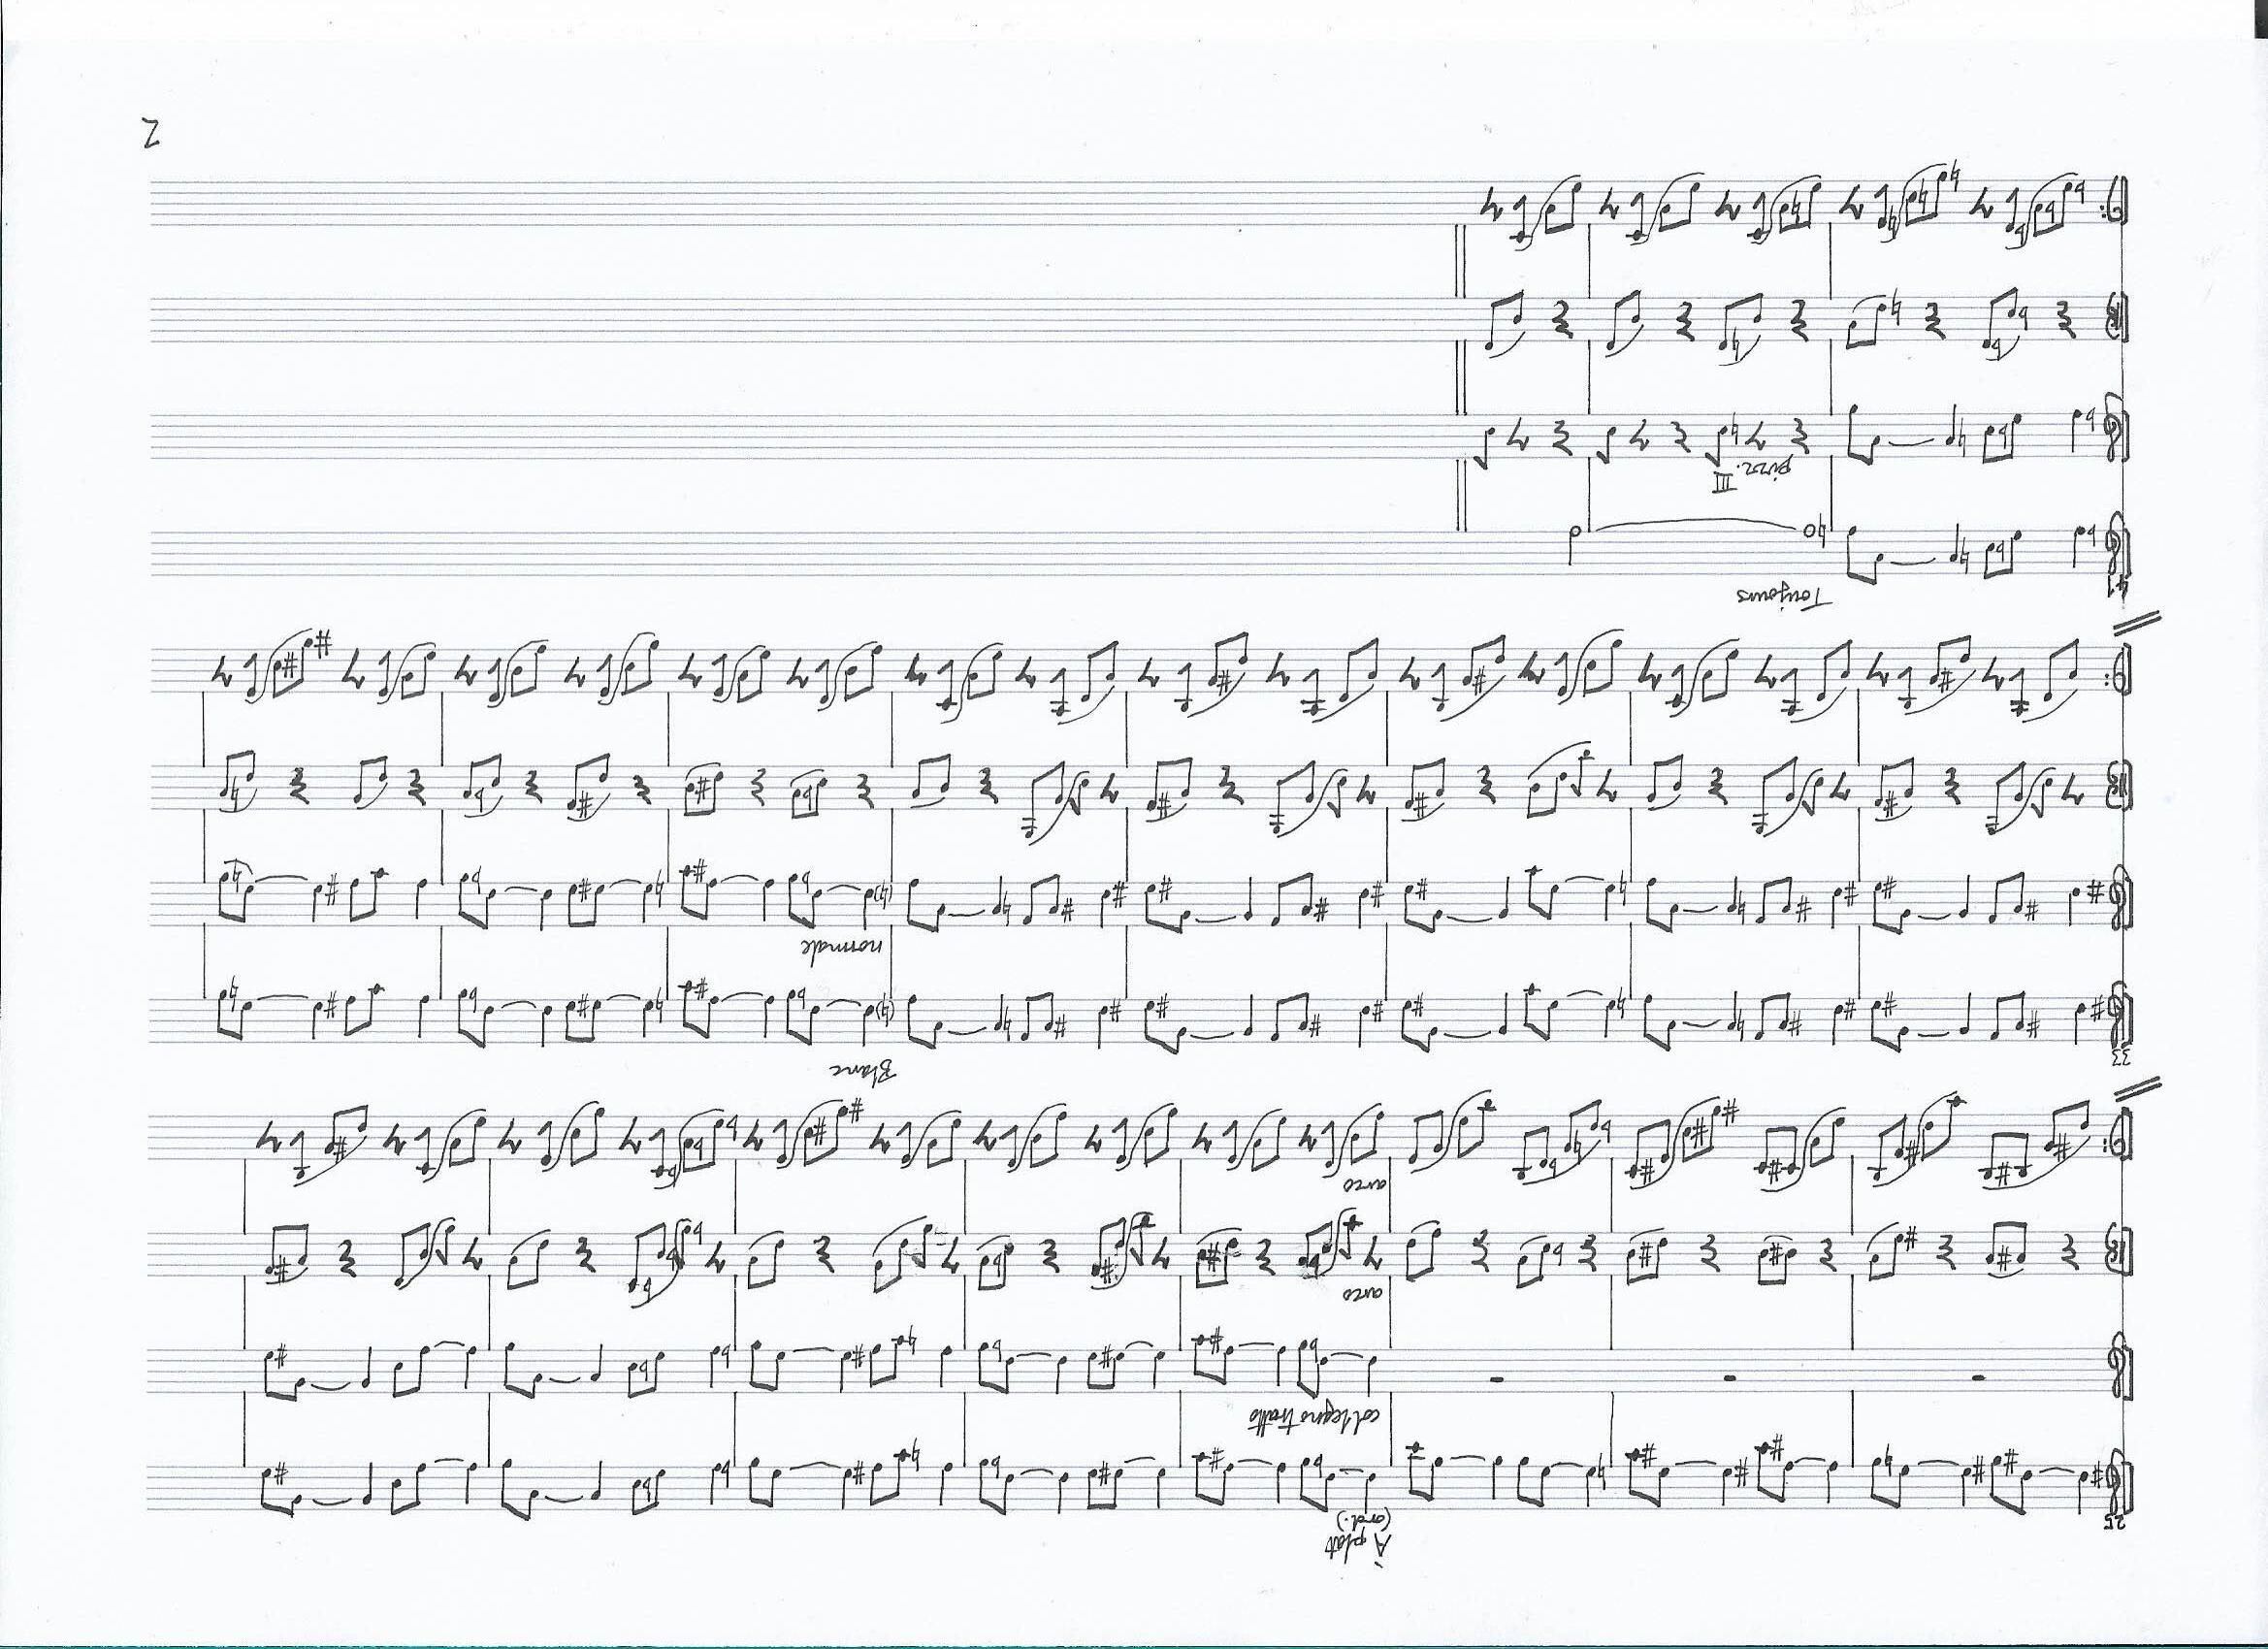 À plat
(ord.)
25
col legno tratto
arco
arco
Blanc
33
normale
Toujours
41
III
pizz.
2